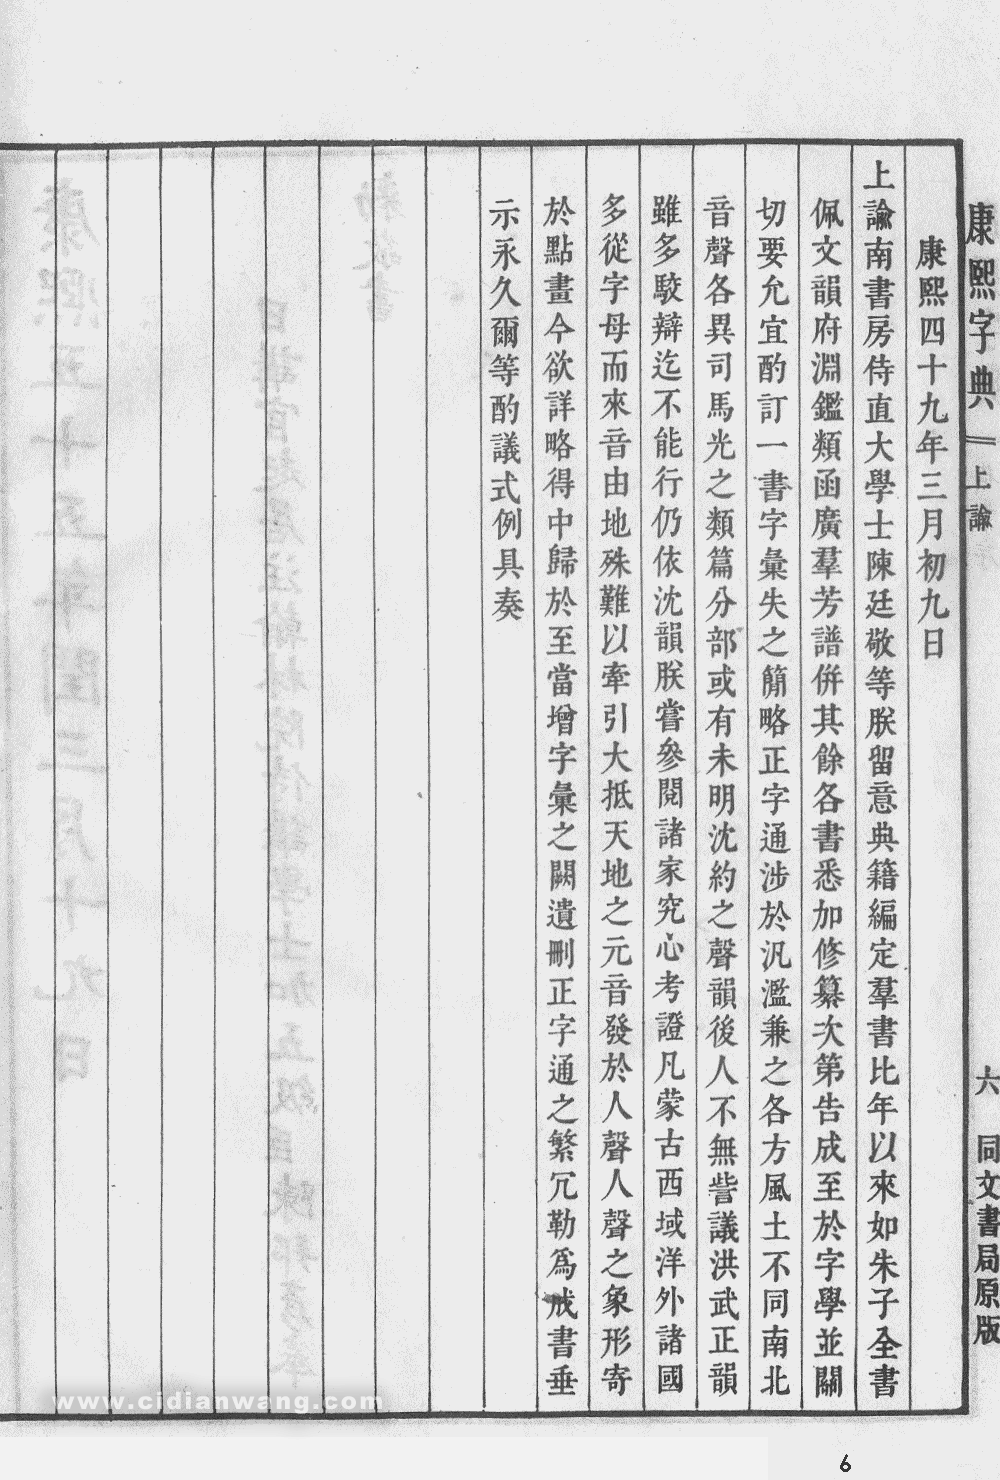 康熙字典 上諭 六 同文書局原版
康熙四十九年三月初九日
上諭南書房侍直大學士陳廷敬等朕留意典籍編定羣書比年以來如朱子全書
佩文韻府淵鑑類函廣羣芳譜併其餘各書悉加修纂次第告成至於字學並關
切要允宜酌訂一書字彙失之簡略正字通涉於汎濫兼之各方風土不同南北
音聲各異司馬光之類篇分部或有未明沈約之聲韻後人不無訾議洪武正韻
雖多駮辯迄不能行仍依沈韻朕嘗參閱諸家究心考證凡蒙古西域洋外諸國
多從字母而來音由地殊難以牽引大抵天地之元音發於人聲人聲之象形寄
於點畫今欲詳略得中歸於至當增字彙之闕遺刪正字通之繁冗勒爲成書垂
示永久爾等酌議式例具奏
www.cidianwang.com
6